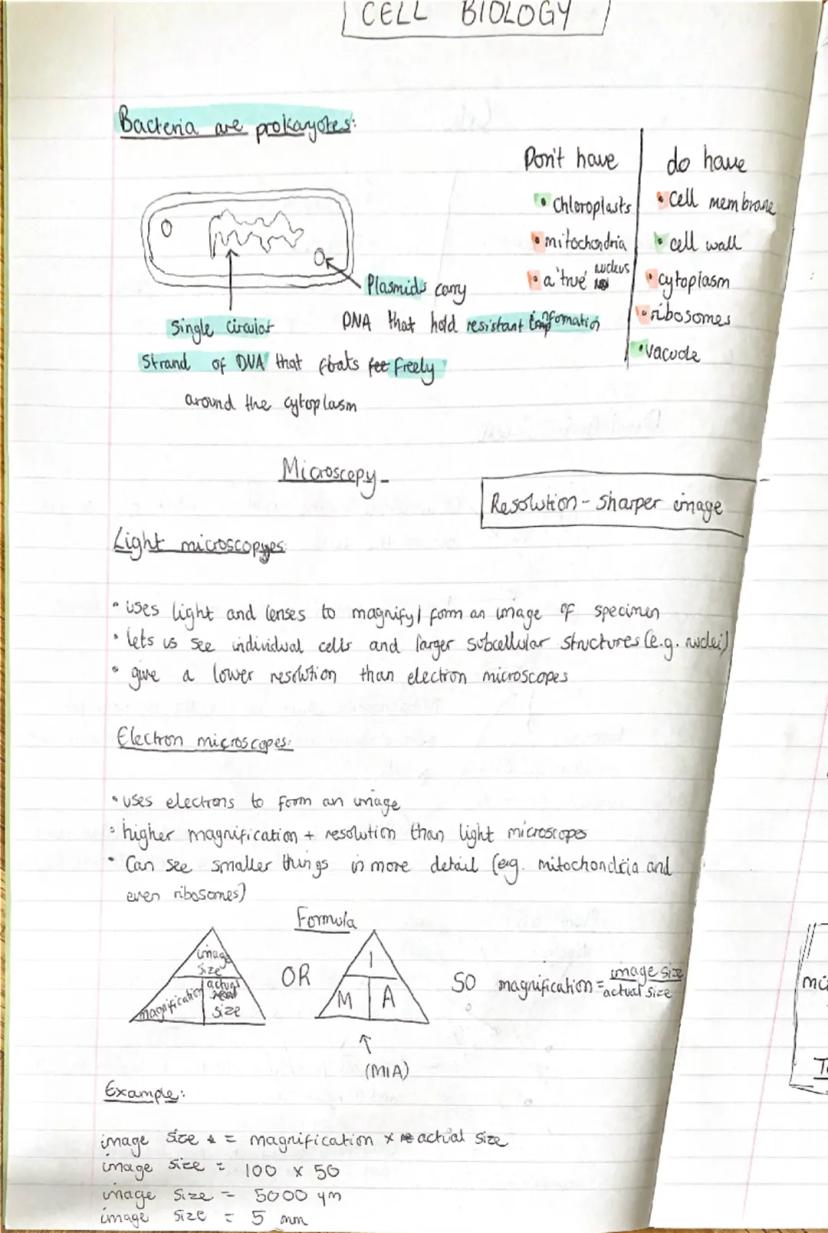 CELL BIOLOGY
Bacteria are prokaryotes:
Don't have
do have
• chloroplasts
• mitochondria
• a 'true' nucleus
• cell membrane
• cell wall
• cytoplasm
• ribosomes
• vacuole
Plasmids carry
DNA that hold resistant infomation
Single circular
strand of DNA that floats freely
around the cytoplasm
Microscopy -
Resolution - sharper image
Light microscopes
• uses light and lenses to magnify/form an image of specimen
• lets us see individual cells and larger subcellular structures (e.g. nuclei)
• give a lower resolution than electron microscopes
Electron microscopes:
• uses electrons to form an image
• higher magnification + resolution than light microscopes
• Can see smaller things in more detail (e.g. mitochondria and
even ribosomes)
Formula
image
size
magnification
actual
size
OR
I
M A
(MIA)
SO magnification = image size
actual size
Example:
image size = magnification x actual size
image size = 100 x 50
image size = 5000 μm
image size = 5 mm